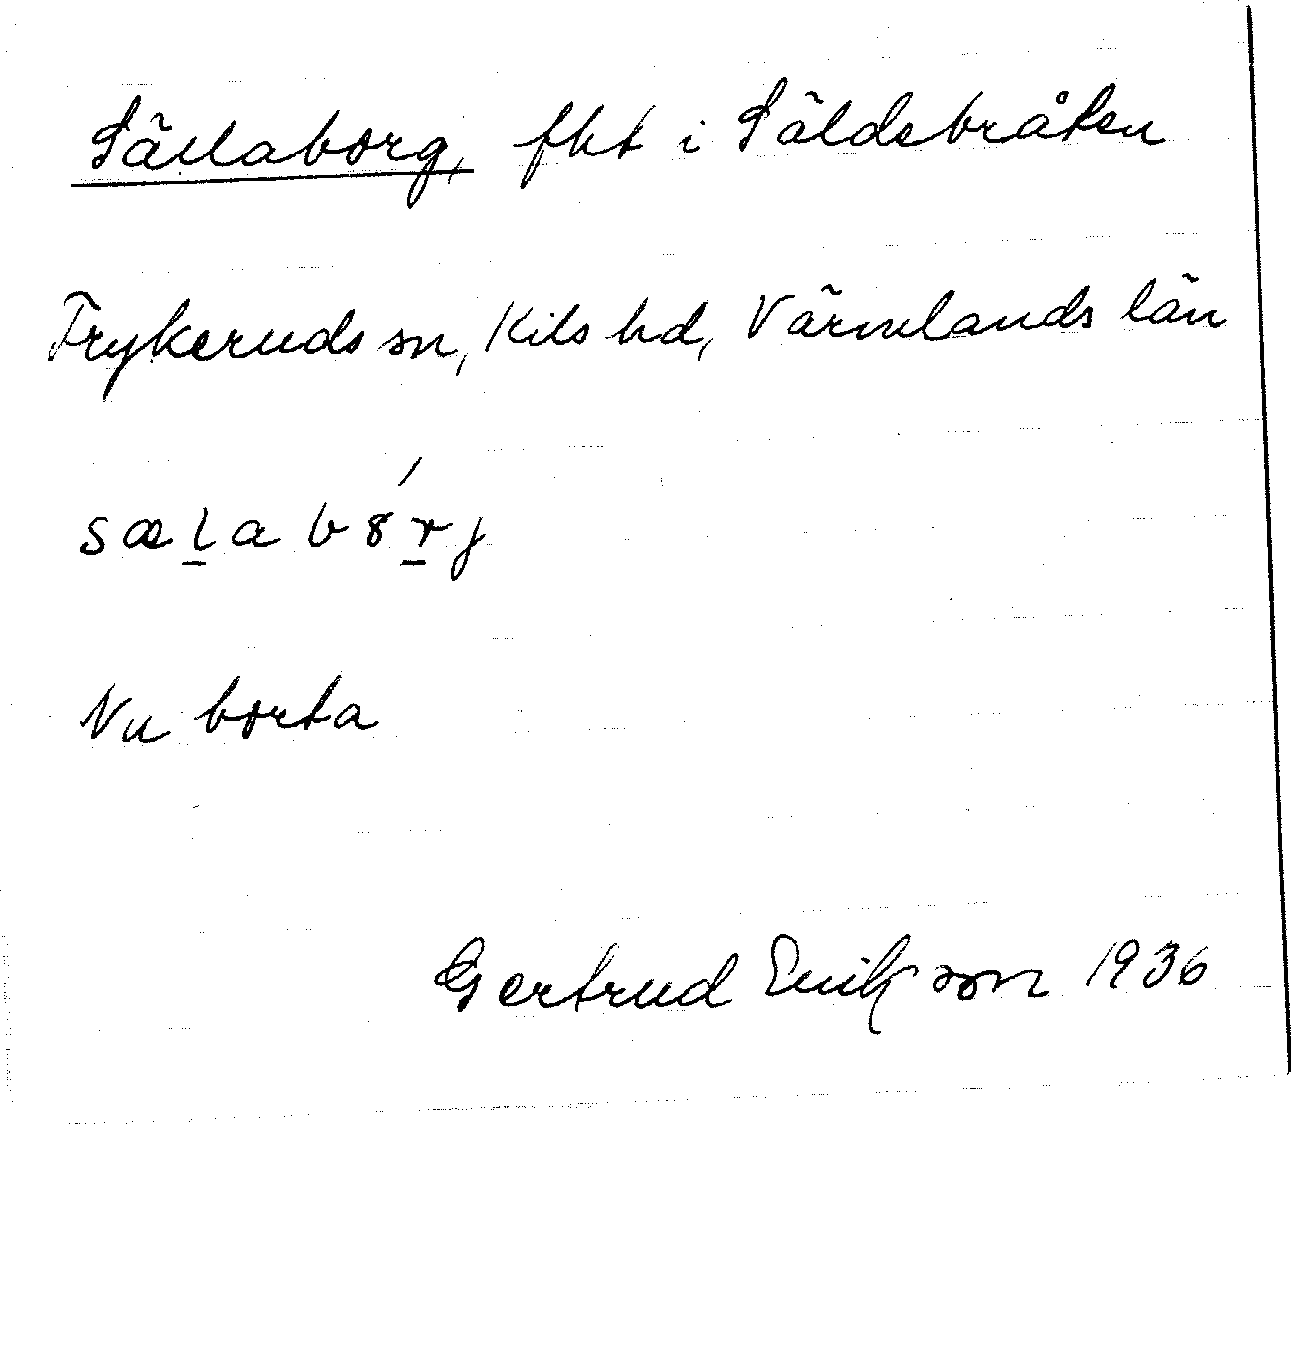 Sällaborg, fht i Säldebråten
Frykeruds sn, Kils hd, Värmlands län
sæl̲abȣ́r̲j
Nu borta
Gertrud Erikson 1936